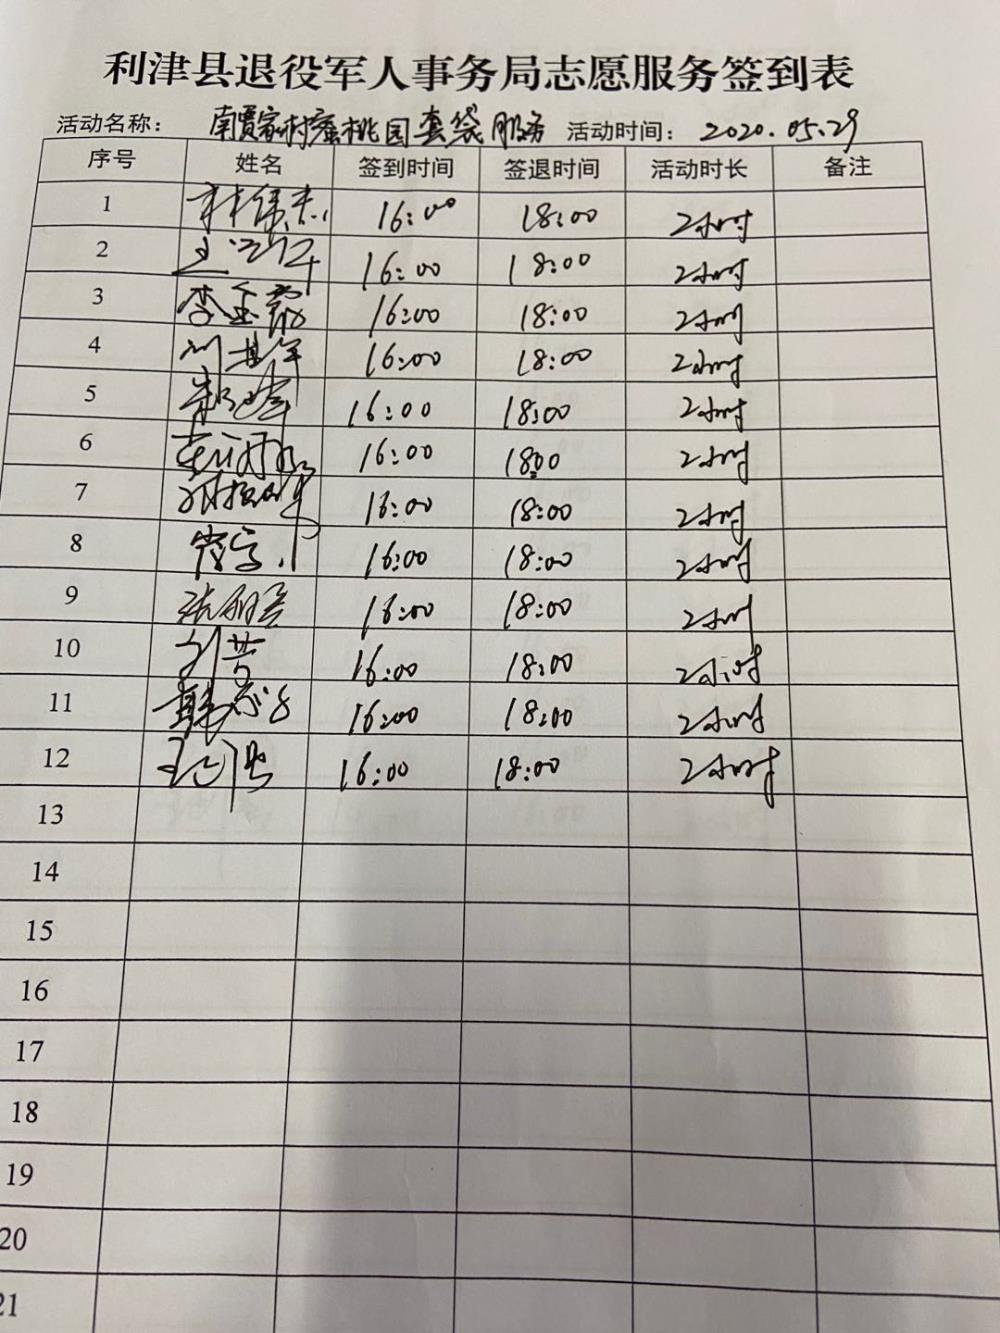 利津县退役军人事务局志愿服务签到表
活动名称： 南贾家村蜜桃园套袋服务 活动时间： 2020.05.29
序号 姓名 签到时间 签退时间 活动时长 备注
1 16:00 18:00 2小时
2 16:00 18:00 2小时
3 李玉霞 16:00 18:00 2小时
4 16:00 18:00 2小时
5 16:00 18:00 2小时
6 16:00 18:00 2小时
7 16:00 18:00 2小时
8 16:00 18:00 2小时
9 16:00 18:00 2小时
10 刘芳 16:00 18:00 2小时
11 16:00 18:00 2小时
12 16:00 18:00 2小时
13
14
15
16
17
18
19
20
21